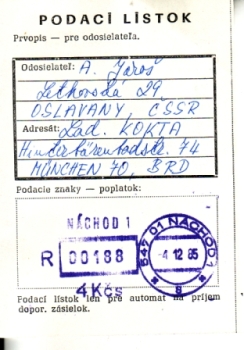 PODACÍ LÍSTOK
Prvopis — pre odosielateľa.
Odosielateľ: A. Jaroš
Letkovská 29
OSLAVANY, ČSSR
Adresát: Lad. KOKTA
Hinterbärenbadstr. 74
MÜNCHEN 70, BRD
Podacie znaky — poplatok:
NÁCHOD 1
R 00188
4 Kčs
547 01 NÁCHOD 1
-4.12.85
8
Podací lístok len pre automat na príjem
dopor. zásielok.